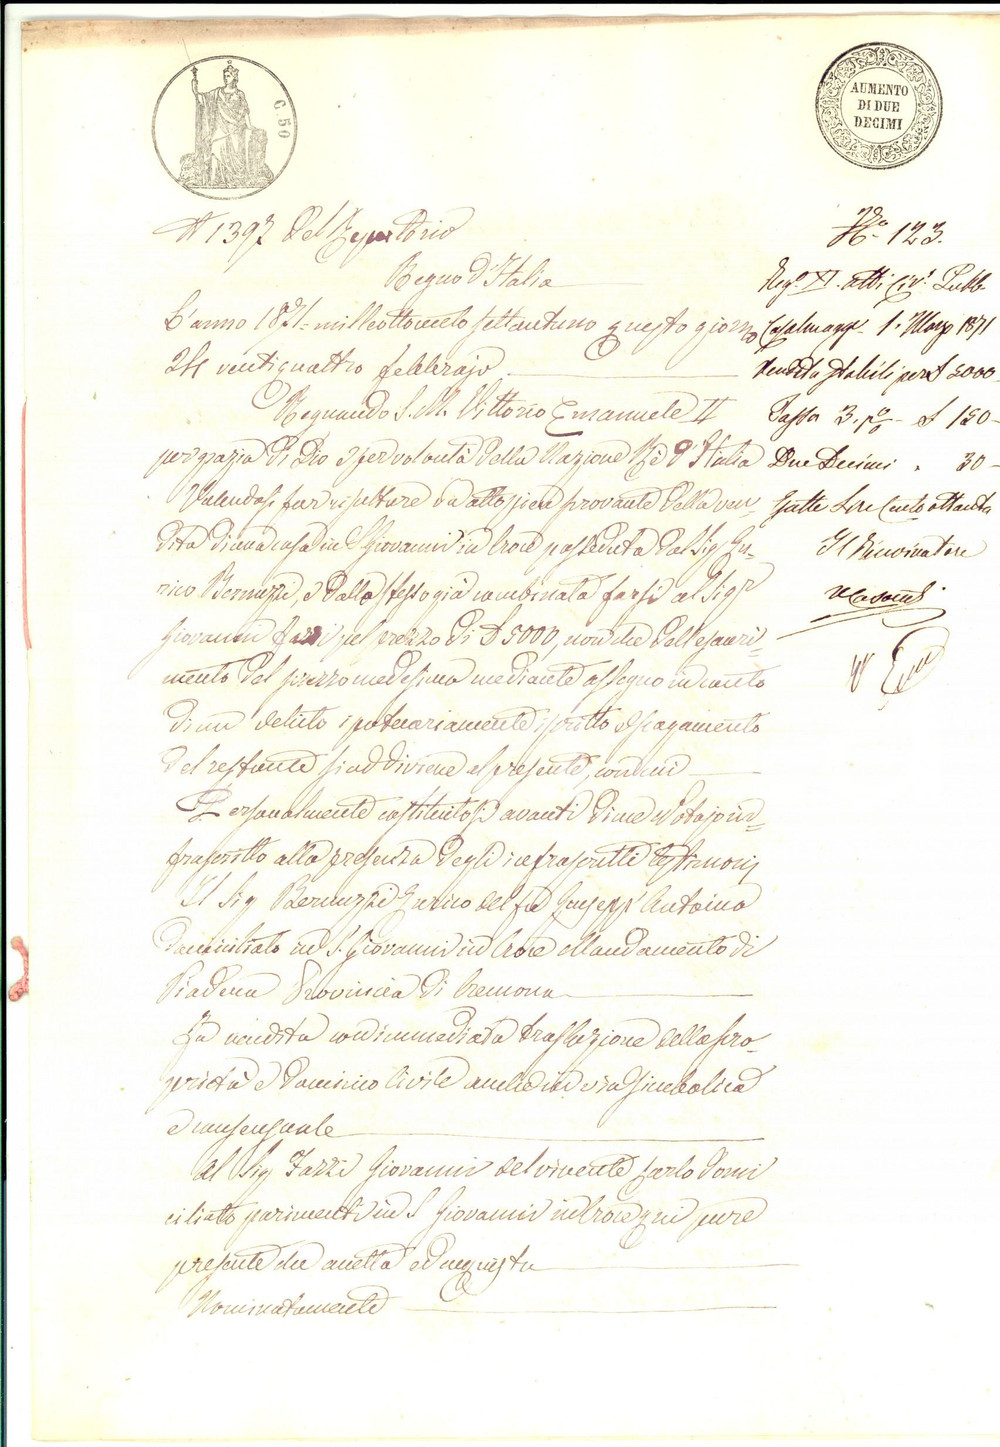 C. 50
AUMENTO
DI DUE
DECIMI
N 1397 del Repertorio
Regno d'Italia
L'anno 1871 = milleottocento settantuno questo giorno
24 ventiquattro febbrajo
Regnando S. M. Vittorio Emanuele II
per grazia di Dio e per volontà della Nazione Rè d'Italia
Volendosi far risultare da atto provante della ven=
dita di una casa in S Giovanni in Croce posseduta dal Sig En=
rico Bernuzzi, e dallo stesso già combinata farsi al Sigr
Giovanni Fazzi pel prezzo di £ 5000, non che dell'esauri=
mento del prezzo medesimo mediante assegno in conto
di un debito ipotecariamente iscritto e pagamento
del restante si addiviene al presente, con cui
Personalmente costituitosi avanti di me Notajo in=
frascritto alla presenza degli infrascritti testimonj
Il Sig Bernuzzi Enrico del fu Giusepp' Antonio
domiciliato in S. Giovanni in Croce Mandamento di
Piadena Provincia di Cremona
Fa vendita con immediata traslazione della pro=
prietà e dominio Civile anche in via simbolica
e consensuale
Al Sig Fazzi Giovanni del vivente Carlo domi
ciliato parimenti in S Giovanni in Croce qui pure
presente che accetta ed acquista
Nominatamente
No. 123.
Reg.o XI. atti Civ.i Pubb.
Casalmagg. 1. Marzo 1871
Vendita stabili per £ 5000
Tassa 3. p% - £ 150 -
Due Decimi " 30 -
Esatte Lire Cento ottanta
Il Ricevitore